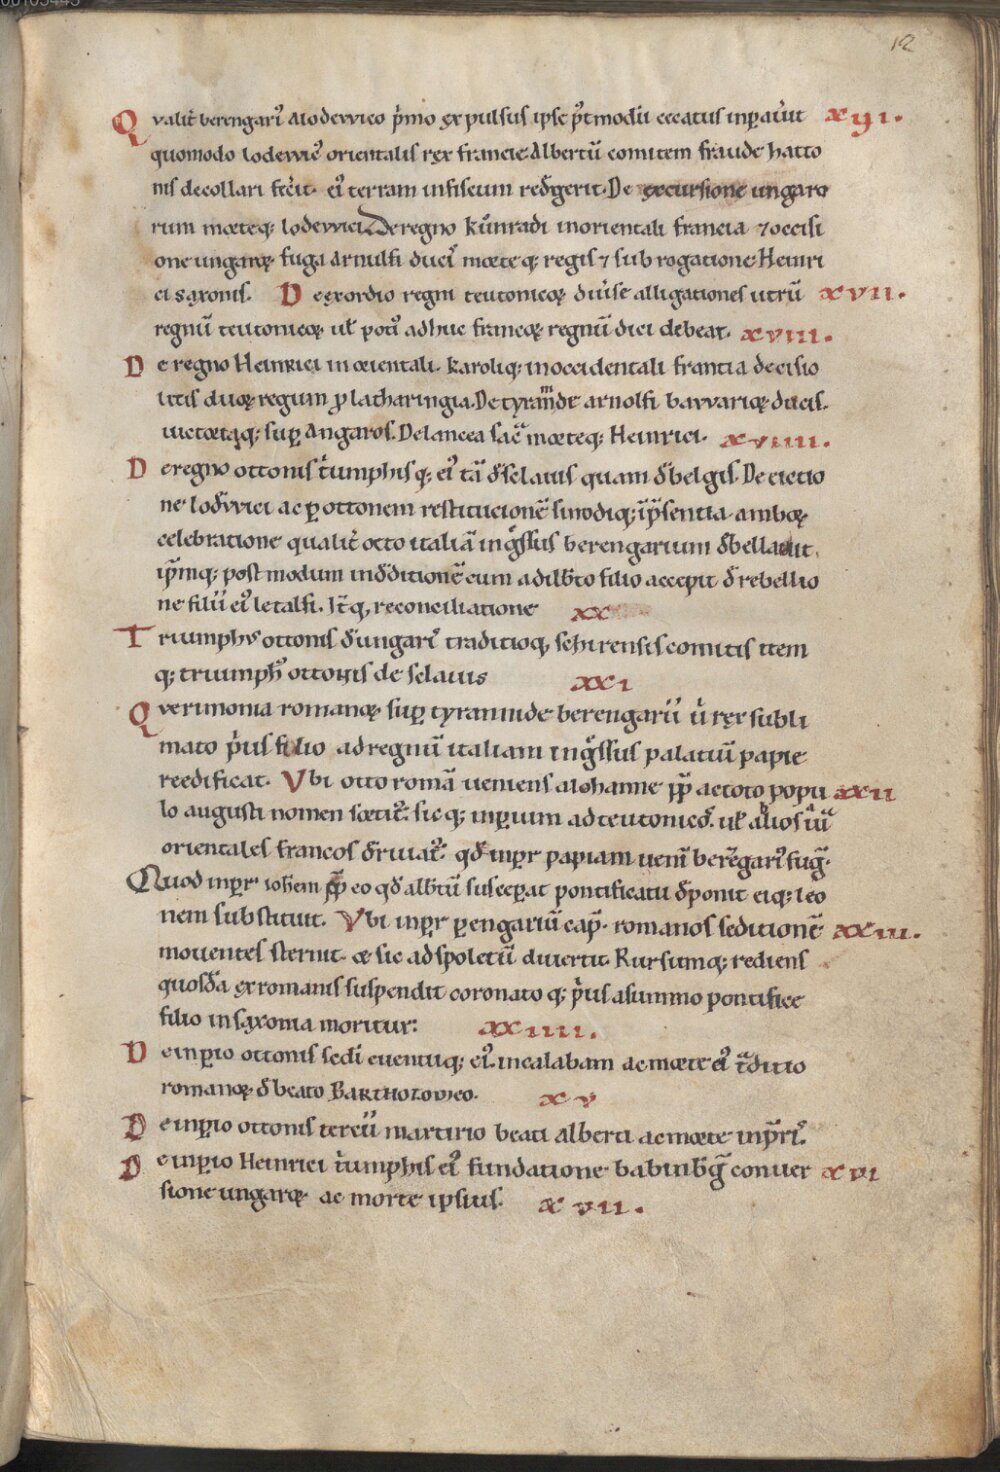 12
Qvalit̄ berengari᾽ a lodewico p̄mo expulsus ipse p̄tmodū cecatus inpauit xvi.
quomodo lodewic᾽ orientalis rex francie. Albertū comitem fraude hatto
nis decollari fecit. ei᾽ terram infiscum redegerit. De excursione ungaro
rum morteq; lodewici. De regno kůnradi in orientali francia ⁊ occisi
one ungarorꝝ. fuga arnulfi ducis morteq; regis ⁊ subrogatione Heinri
ci saxonis. De exordio regni teutonicorꝝ diuise alligationes utrū xvii.
regnū teutonicorꝝ ul̄ poti᾽ adhuc francorꝝ regnū dici debeat. xviii.
De regno Heinrici in orientali. karoliq; in occidentali francia de cisio
litis duorꝝ regum ꝓ latharingia. De tyrannide arnolfi bavvariorꝝ ducis.
uictoriaq; sup angaros. De lancea sacra morteq; Heinrici. xviiii.
De regno ottonis t̄umphisq; ei᾽ tā d̄ sclauis quam d̄ belgis. De eiectio
ne lodvvici ac ꝑ ottonem restitucionē sinodiq; ip̄sentia amborꝝ
celebratione qualit̄ otto italiā ingssus berengarium d̄bellauit.
ip̄mq; postmodum in deditionē cum adilb̄to filio accepit d̄ rebellio
ne filii ei᾽ letalfi. It̄q, reconciliatione xx
Triumph᾽ ottonis d̄ ungari᾽ traditioq, schirensis comitis item
q; triumph᾽ ottonis de sclauis xxi
Querimonia romanorꝝ sup tyrannide berengarii u᾽ rex subli
mato p̄us filio ad regnū italiam ingssus palatiū papie
reedificat. Vbi otto romā ueniens a iohanne p̄p ac toto popu xxii
lo augusti nomen sortit᾽. sic q; inperium ad teutonicos. ul̄ alios iuxta
orientales francos deriuat᾽. qd̄ inpr papiam uenit berengari᾽ fug̃.
Quod inpr iohem p̄p eo qd̄ albtū susceperat pontificatu deponit eiq; leo
nem substituit. Vbi inpr perengariū cap̄. romanos seditionē xxiii.
mouentes sternit. & sic ad spoletū diuertit. Rursumq; rediens
quosdā ex romanis suspendit coronato q; p̄us a summo pontifice
filio in saxonia moritur: xxiiii.
De inperio ottonis sedi euentuq; ei᾽. in calabam ac morte ei᾽ t̄ditio
romanorꝝ d̄ beato Bartholomeo. xv
De inperio ottonis tercii martirio beati alberti ac morte inpris᾽.
De inperio Heinrici t̄umphis ei᾽ fundatione babinbg̃ conuer xvi
sione ungarorꝝ ac morte ipsius. xvii.